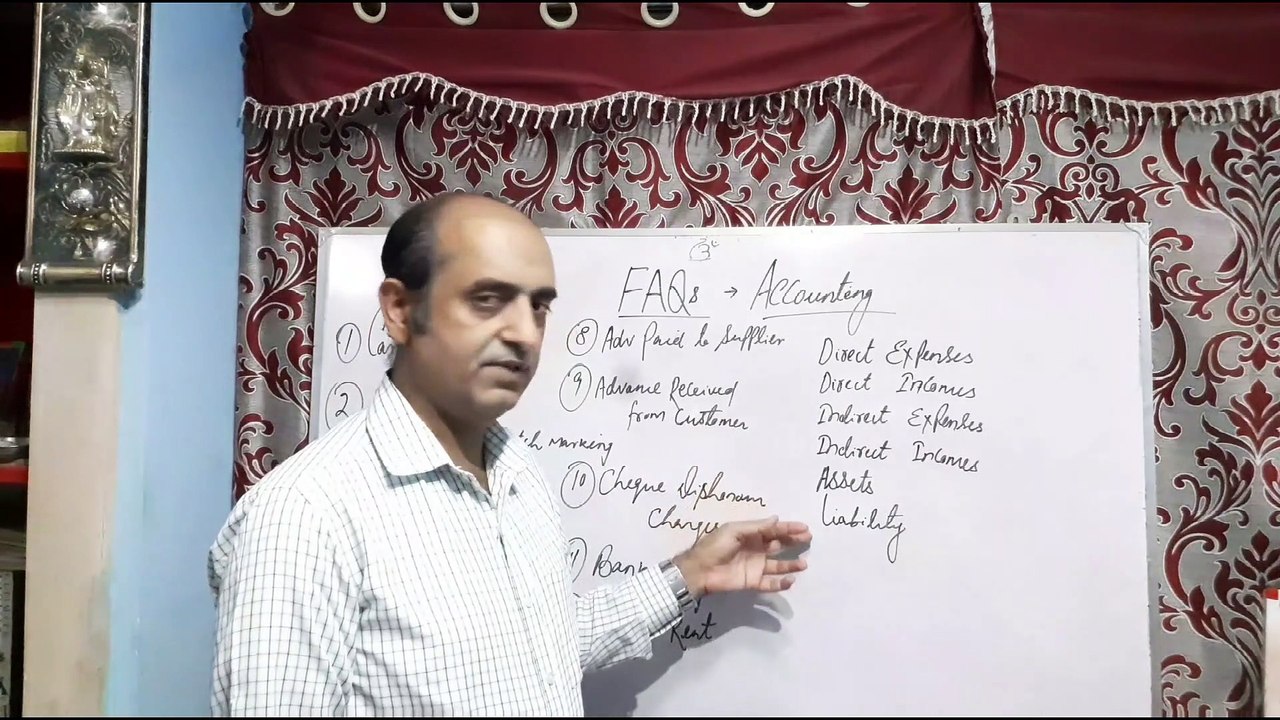 FAQs → Accounting
① Ca
②
tch Marking
⑧ Adv Paid to Supplier
⑨ Advance Received
from Customer
⑩ Cheque Dishonour
Charges
Bank
Rent
Direct Expenses
Direct Incomes
Indirect Expenses
Indirect Incomes
Assets
Liability